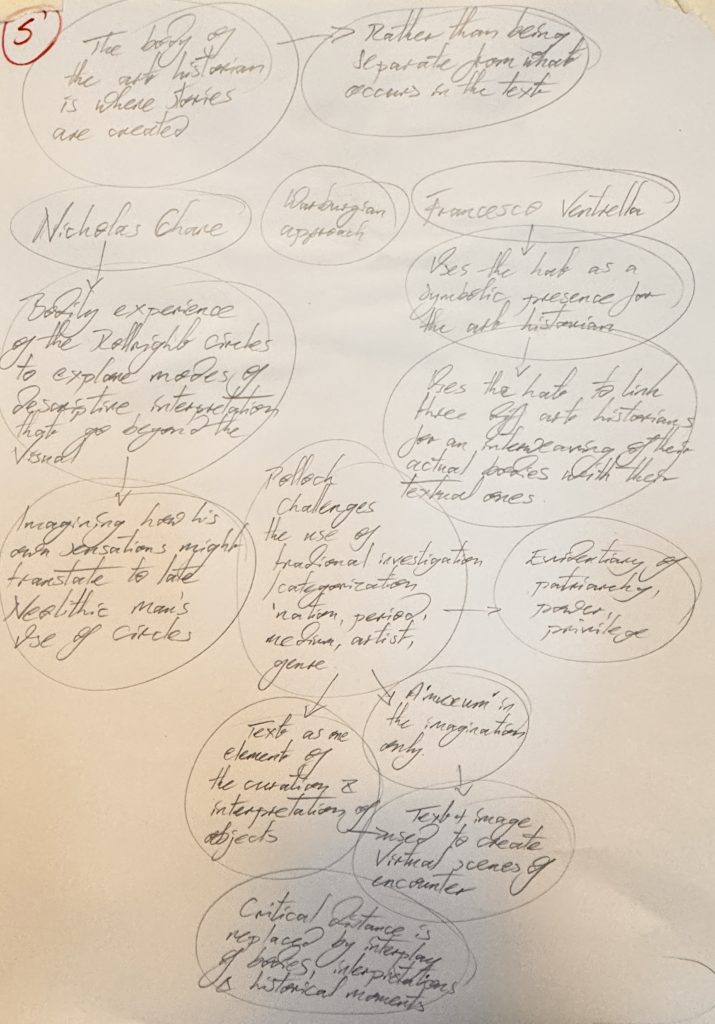 5
The body of
the art historian
is where stories
are created
Rather than being
separate from what
occurs in the text
Nicholas Chare
Warburgian
approach
Francesco Ventrella
Bodily experience
of the Rollright Circles
to explore modes of
descriptive interpretation
that go beyond the
Visual
Imagining how his
own sensations might
translate to late
Neolithic man's
use of circles
Uses the hat as a
symbolic presence for
the art historian
Uses the hat to link
three art historians
for an interweaving of their
actual bodies with their
textual ones.
Pollock
challenges
the use of
tradional investigation
/categorization
'nation, period,
medium, artist,
genre.
Evidentiary of
patriarchy,
power,
privilege
A 'museum' in
the imagination
only.
Text as one
element of
the curation &
interpretation of
objects
Text + image
used to create
Virtual scenes of
encounter
Critical distance is
replaced by interplay
of bodies, interpretations
& historical moments